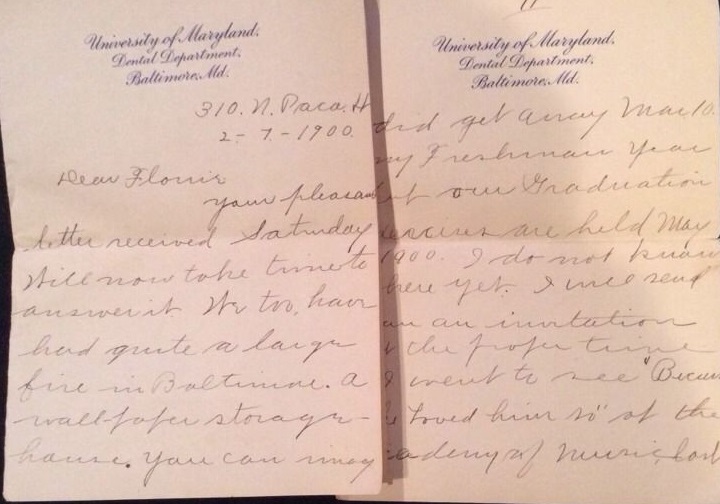 University of Maryland,
Dental Department,
Baltimore, Md.
310. N. Paca. St
2-7-1900.
Dear Florrie
your pleasan
letter received Saturday
Will now take time to
answer it. We too, have
had quite a large
fire in Baltimore. A
wall-paper storage-
house. You can imag
11
University of Maryland,
Dental Department,
Baltimore, Md.
did get away Mar 10.
my Freshman Year
our Graduation
are held May
1900. I do not know
here yet. I will send
an invitation
the proper time
I went to see "Becau
he loved him so" at the
ademy of Music, last